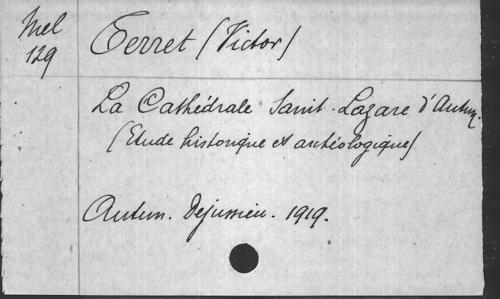 Mel
129
Terret (Victor)
La Cathédrale Saint-Lazare d'Autun.
(Etude historique et archéologique)
Autun. Dejussieu. 1919.